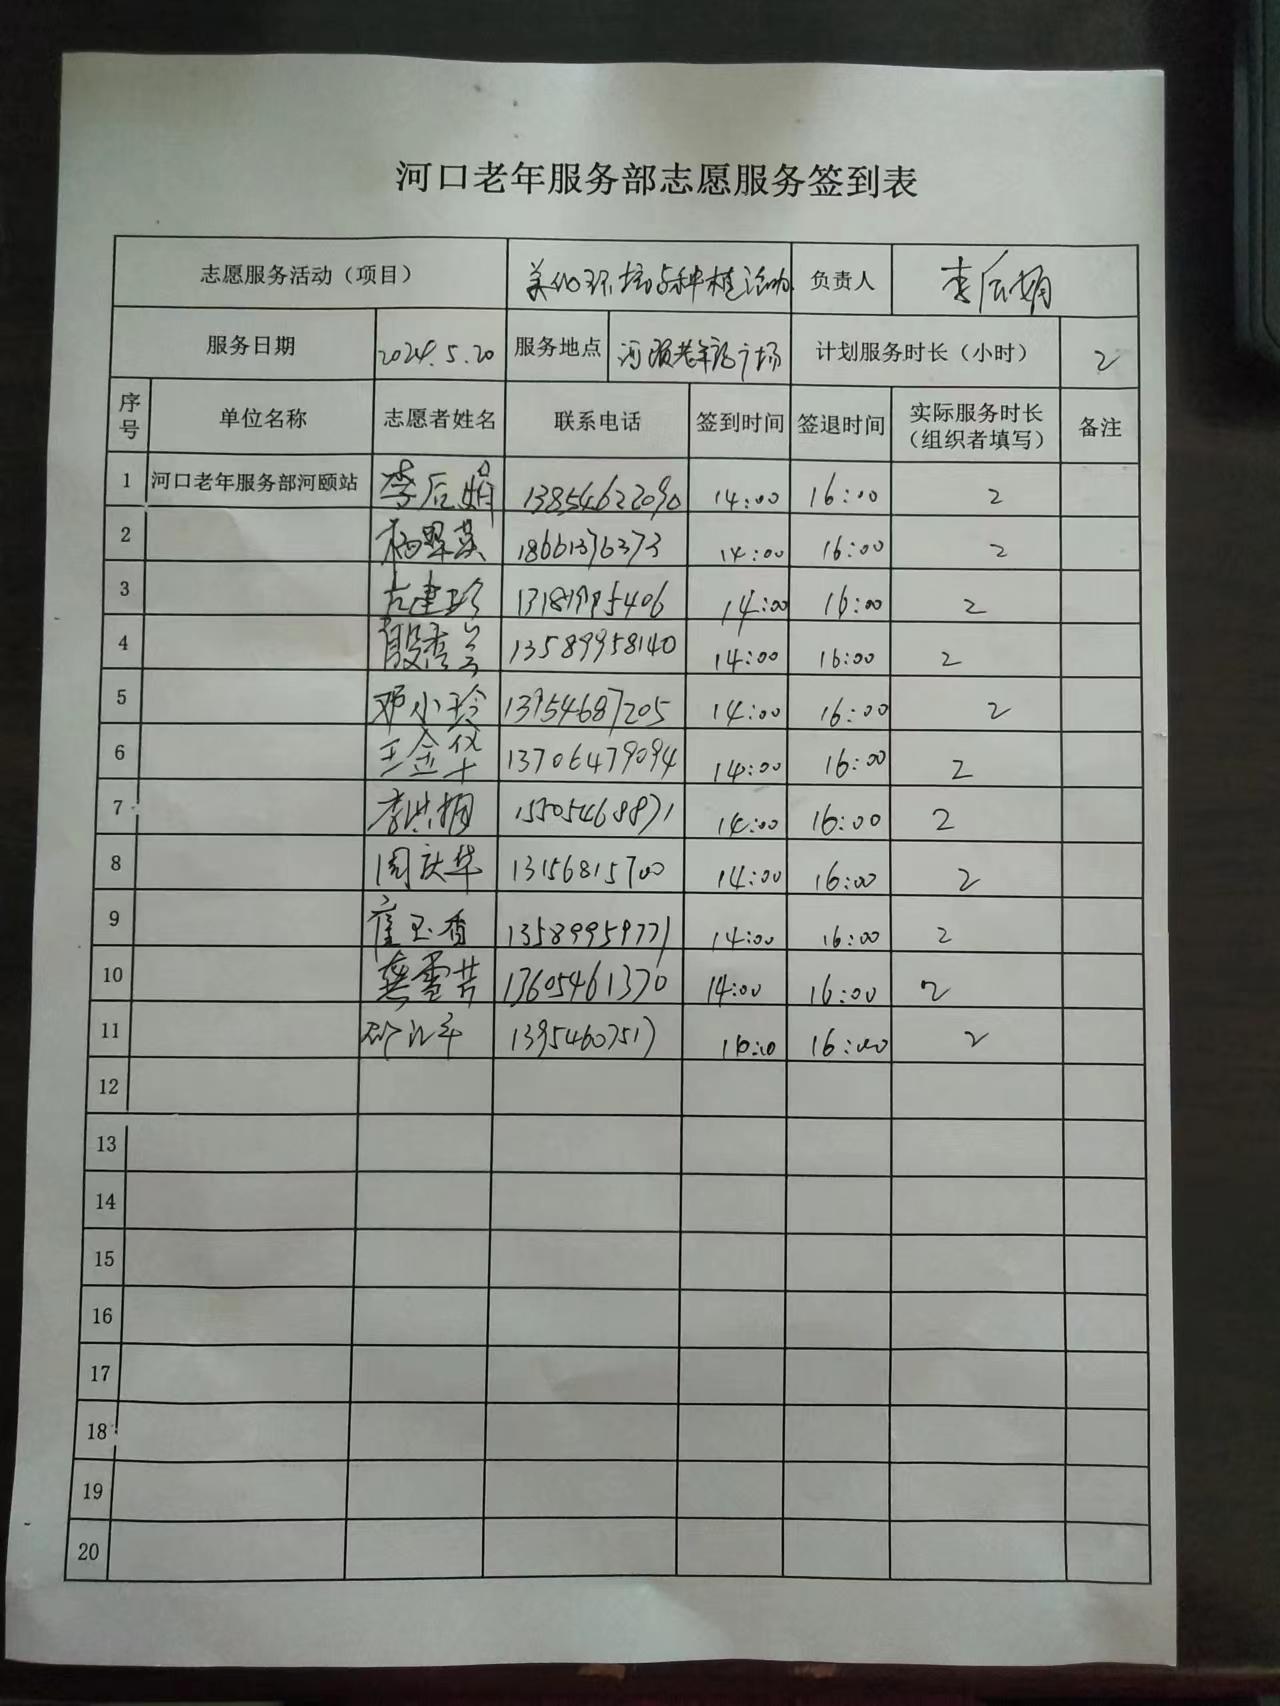 河口老年服务部志愿服务签到表
志愿服务活动（项目） 美化环境与种植活动 负责人 李后娟
服务日期 2024.5.20 服务地点 河颐老年站广场 计划服务时长（小时） 2
序号 单位名称 志愿者姓名 联系电话 签到时间 签退时间 实际服务时长（组织者填写） 备注
1 河口老年服务部河颐站 李后娟 13854622090 14:00 16:00 2
2 杨翠英 18661376373 14:00 16:00 2
3 古建珍 13181995406 14:00 16:00 2
4 殷秀兰 13589958140 14:00 16:00 2
5 邓小玲 13954687205 14:00 16:00 2
6 王金华 13706479094 14:00 16:00 2
7 李洪娟 15505468871 14:00 16:00 2
8 周庆华 13156815700 14:00 16:00 2
9 崔玉香 13589959771 14:00 16:00 2
10 龚雪芸 13605461370 14:00 16:00 2
11 13954607517 16:00 2
12
13
14
15
16
17
18
19
20